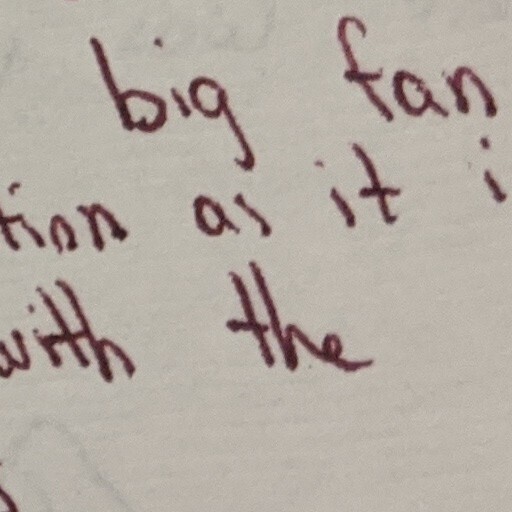 big fan
tion as it i
with the